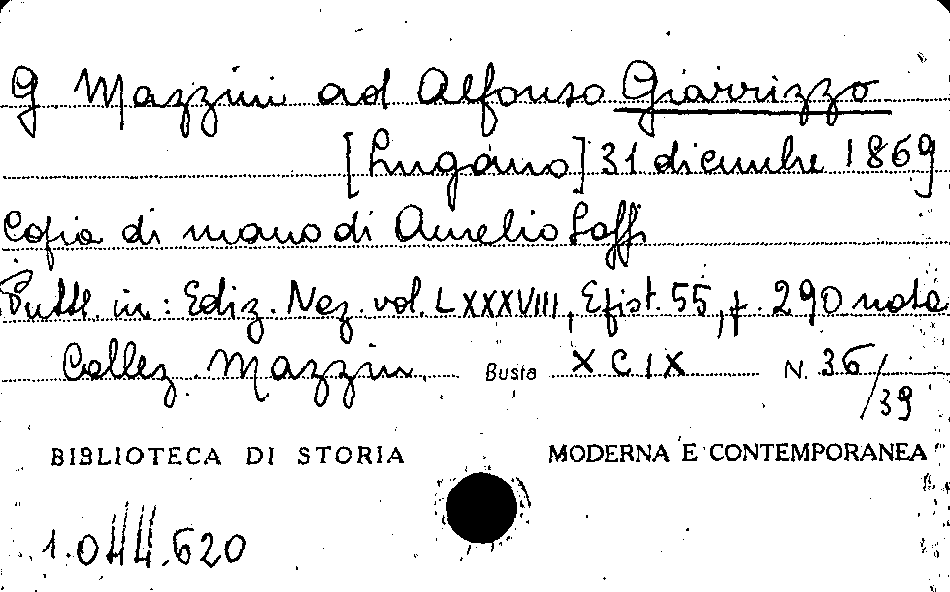 G Mazzini ad Alfonso Giarrizzo
[Lugano] 31 dicembre 1869]
Copia di mano di Aurelio Saffi
Pubbl. in: Ediz. Naz. vol. LXXXVIII, Epist. 55, p. 290 nota
Collez. Mazzini. Busta XCIX N. 36/39
BIBLIOTECA DI STORIA MODERNA E CONTEMPORANEA
1.044.620